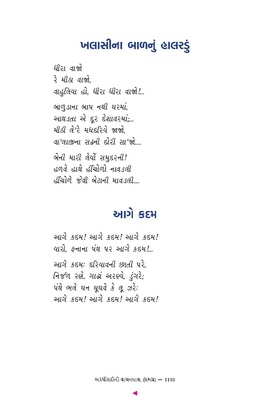 ખલાસીના બાળનું હાલરડું
ધીરા વાજો
રે મીઠા વાજો,
વાહુલિયા હો, ધીરા ધીરા વાજો!..
બાળુડાના બાપ નથી ઘરમાં,
આથડતા એ દૂર દેશાવરમાં;..
મીઠી લે'રે મધદરિયે જાજો,
વા'લાજીના સઢની દોરી સા'જો...
બેની મારી લેર્યો સમુદરની!
હળવે હાથે હીંચોળો નાવડલી
હીંચોળે જેવી બેટાની માવડલી...
આગે કદમ
આગે કદમ! આગે કદમ! આગે કદમ!
યારો, ફનાના પંથ પર આગે કદમ!..
આગે કદમઃ દરિયાવની છાતી પરે,
નિર્જળ રણે, ગાઢાં અરણ્યે, ડુંગરે;
પંથે ભલે ઘન ઘૂઘવે કે લૂ ઝરેઃ
આગે કદમ! આગે કદમ! આગે કદમ!
અરધીસદીની વાચનયાત્રા — 1135